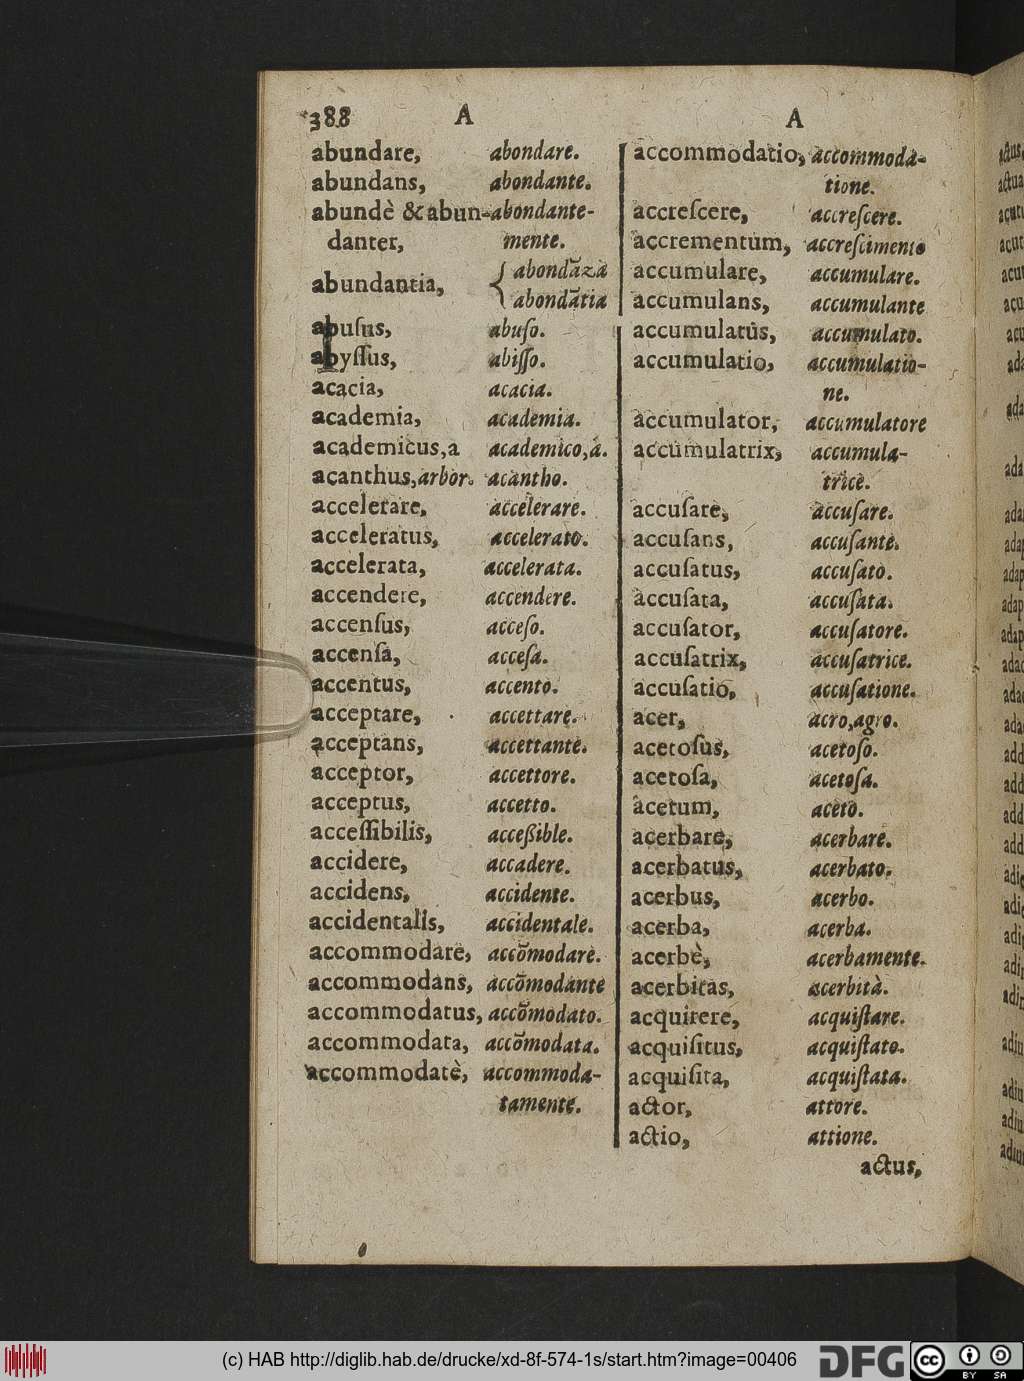 388 A A
abundare, abondare.
abundans, abondante.
abundè & abun- abondante-
danter, mente.
abundantia, { abondãza
abondãtia
abuſus, abuſo.
abyſſus, abiſſo.
acacia, acacia.
academia, academia.
academicus,a academico,a.
acanthus,arbor. acantho.
accelerare, accelerare.
acceleratus, accelerato.
accelerata, accelerata.
accendere, accendere.
accenſus, acceſo.
accenſa, acceſa.
accentus, accento.
acceptare, accettare.
acceptans, accettante.
acceptor, accettore.
acceptus, accetto.
acceſſibilis, acceßible.
accidere, accadere.
accidens, accidente.
accidentalis, accidentale.
accommodare, accõmodare.
accommodans, accõmodante
accommodatus, accõmodato.
accommodata, accõmodata.
accommodatè, accommoda-
tamente.
accommodatio, accommoda-
tione.
accreſcere, accreſcere.
accrementum, accreſcimento
accumulare, accumulare.
accumulans, accumulante
accumulatus, accumulato.
accumulatio, accumulatio-
ne.
accumulator, accumulatore
accumulatrix, accumula-
trice.
accuſare, accuſare.
accuſans, accuſante.
accuſatus, accuſato.
accuſata, accuſata.
accuſator, accuſatore.
accuſatrix, accuſatrice.
accuſatio, accuſatione.
acer, acro,agro.
acetoſus, acetoſo.
acetoſa, acetoſa.
acetum, aceto.
acerbare, acerbare.
acerbatus, acerbato.
acerbus, acerbo.
acerba, acerba.
acerbè, acerbamente.
acerbitas, acerbità.
acquirere, acquiſtare.
acquiſitus, acquiſtato.
acquiſita, acquiſtata.
actor, attore.
actio, attione.
actus,
(c) HAB http://diglib.hab.de/drucke/xd-8f-574-1s/start.htm?image=00406
DFG
cc BY SA